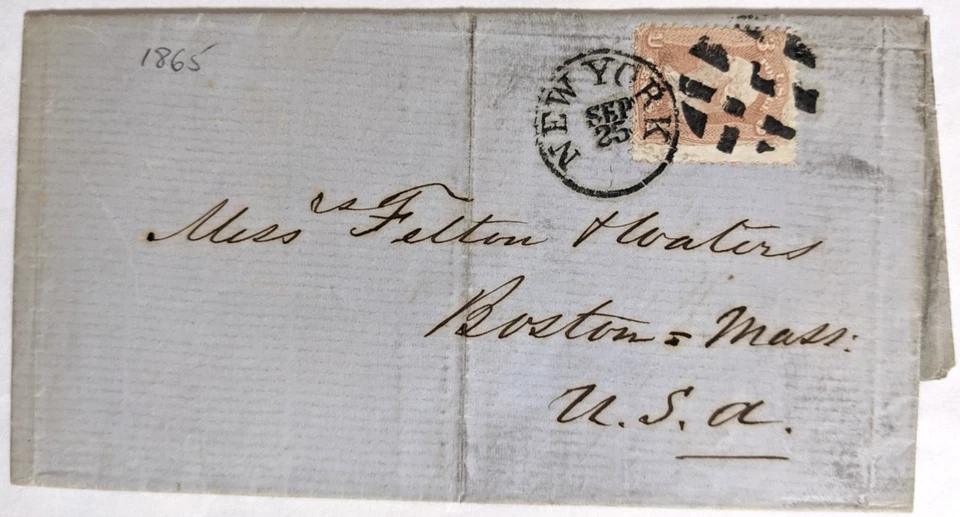 1865
NEW YORK
SEP
25
U 3
Messrs Felton & Waters
Boston = Mass:
U.S.A.